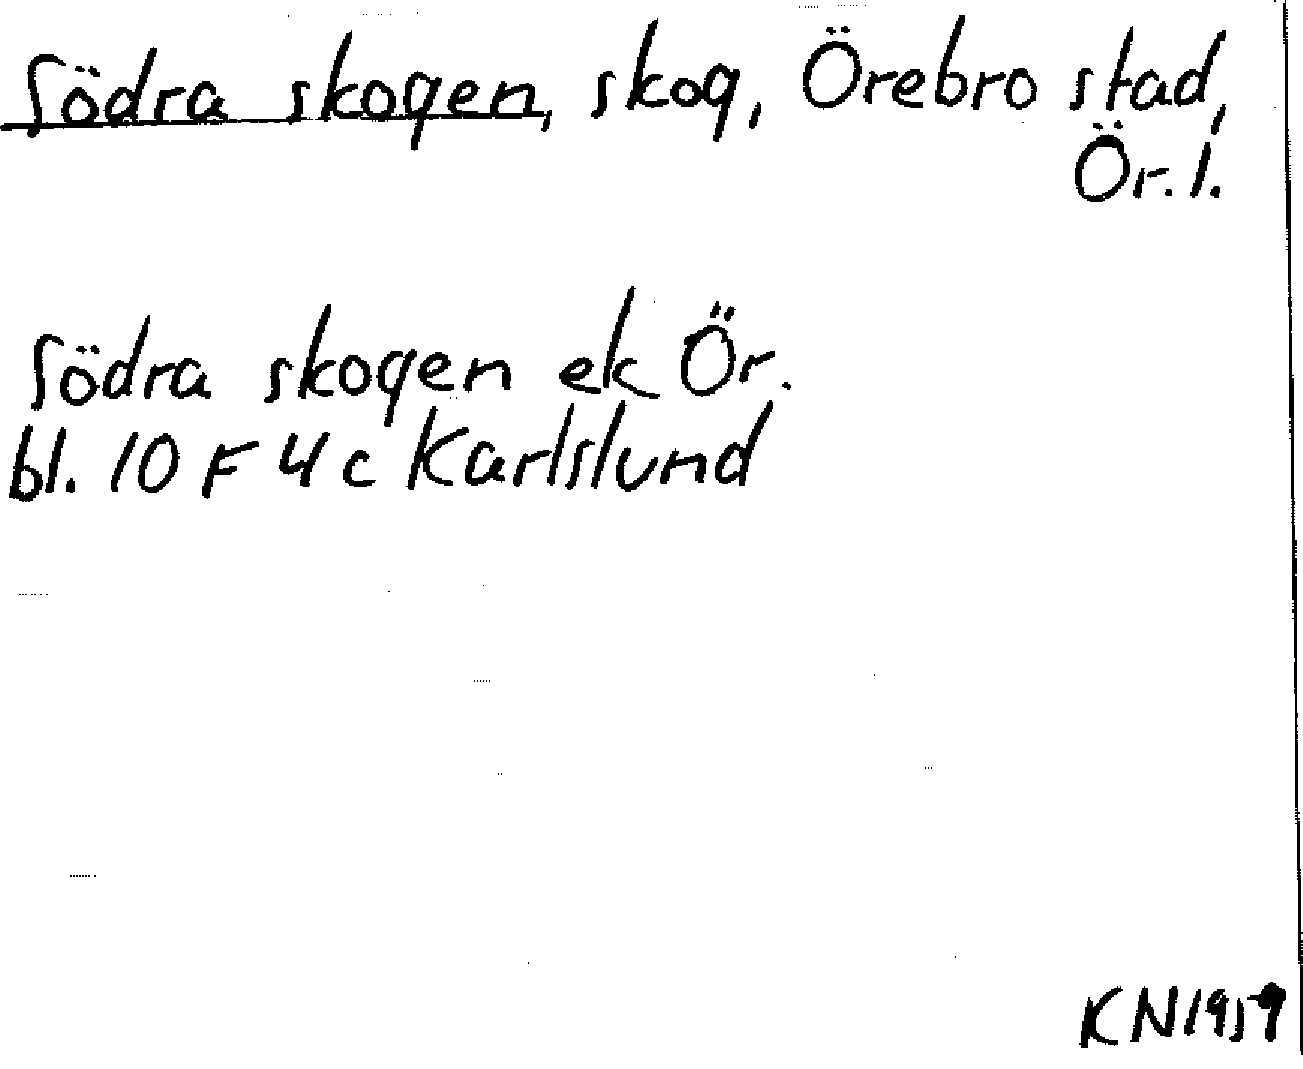 Södra skogen, skog, Örebro stad,
Ör. l.
Södra skogen ek Ör.
bl. 10 F 4 c Karlslund
KN 1959